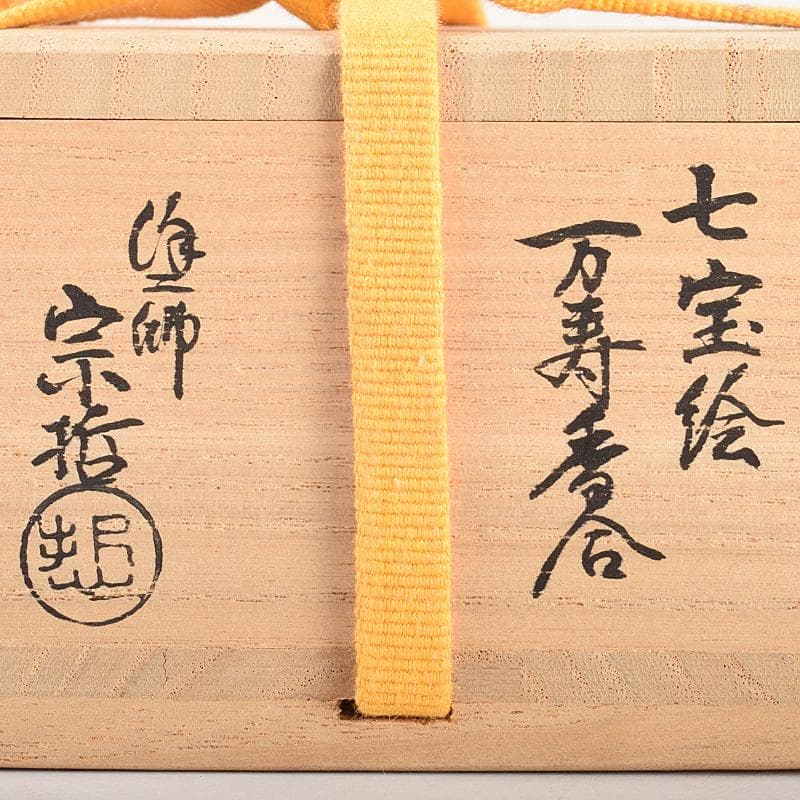 七宝絵
万寿香合
塗師
宗哲
哲